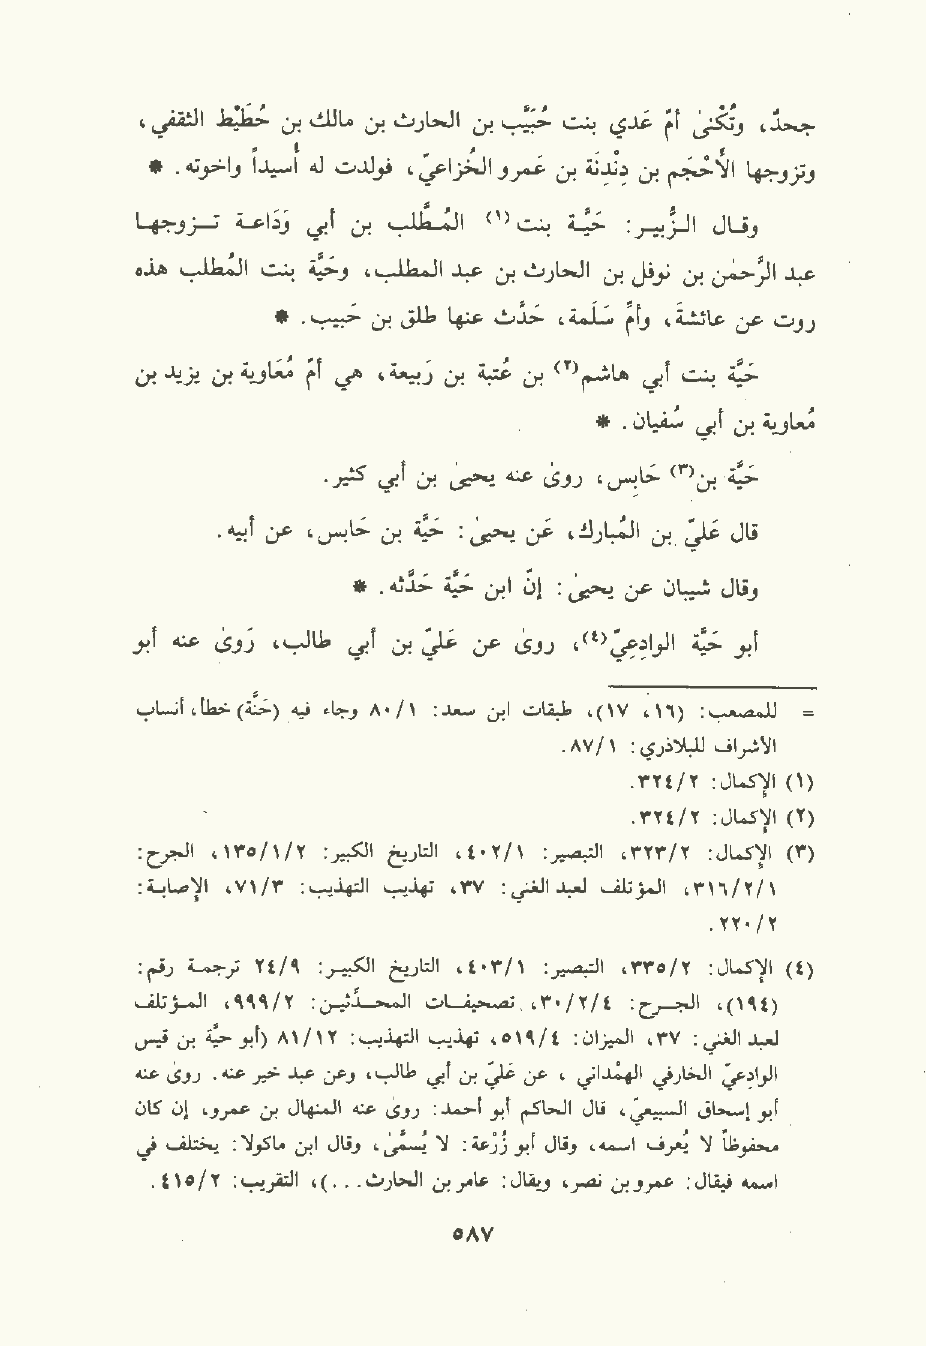 جحدّ، وتُكْنىٰ أمّ عَدي بنت حُبَيَّب بن الحارث بن مالك بن حُطَيْط الثقفي،
وتزوجها الأحْجَم بن دِنْدِنَة بن عَمرو الخُزاعيّ، فولدت له أُسيداً وإخوته. *
وقال الزُبير: حَيَّة بنت(١) المُطَّلب بن أبي وَدَاعة تزوجها
عبد الرَّحمٰن بن نوفل بن الحارث بن عبد المطلب، وحَيَّة بنت المُطلب هذه
روت عن عائشَة، وأمّ سَلَمة، حَدّث عنها طلق بن حَبيب. *
حَيَّة بنت أبي هاشم(٢) بن عُتبة بن رَبيعة، هي أمّ مُعَاوية بن يزيد بن
مُعاوية بن أبي سُفيان. *
حَيَّة بن(٣) حَابِس، روىٰ عنه يحيىٰ بن أبي كثير.
قال عَليّ بن المُبارك، عَن يحيىٰ: حَيَّة بن حَابس، عن أبيه.
وقال شيبان عن يحيىٰ: إنّ ابن حَيَّة حَدّثه. *
أبو حَيَّة الوادِعِيّ(٤)، روىٰ عن عَليّ بن أبي طالب، رَوىٰ عنه أبو
= للمصعب: (١٦، ١٧)، طبقات ابن سعد: ٨٠/١ وجاء فيه (حَنَّة) خطأ، أنساب
الأشراف للبلاذري: ٨٧/١.
(١) الإكمال: ٣٢٤/٢.
(٢) الإكمال: ٣٢٤/٢.
(٣) الإكمال: ٣٢٣/٢، التبصير: ٤٠٢/١، التاريخ الكبير: ١٣٥/١/٢، الجرح:
٣١٦/٢/١، المؤتلف لعبد الغني: ٣٧، تهذيب التهذيب: ٧١/٣، الإصابة:
٢٢٠/٢.
(٤) الإكمال: ٣٣٥/٢، التبصير: ٤٠٣/١، التاريخ الكبير: ٢٤/٩ ترجمة رقم:
(١٩٤)، الجرح: ٣٠/٢/٤، تصحيفات المحدّثين: ٩٩٩/٢، المؤتلف
لعبد الغني: ٣٧، الميزان: ٥١٩/٤، تهذيب التهذيب: ٨١/١٢ (أبو حيَّة بن قيس
الوادعيّ الخارفي الهمْداني، عن عَليّ بن أبي طالب، وعن عبد خير عنه. روىٰ عنه
أبو إسحاق السبيعيّ، قال الحاكم أبو أحمد: روىٰ عنه المنهال بن عمرو، إن كان
محفوظاً لا يُعرف اسمه، وقال أبو زُرْعة: لا يُسمّىٰ، وقال ابن ماكولا: يختلف في
اسمه فيقال: عمرو بن نصر، ويقال: عامر بن الحارث...)، التقريب: ٤١٥/٢.
٥٨٧